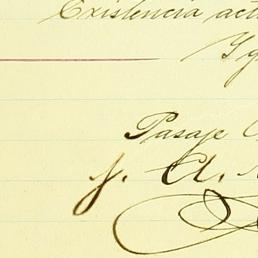 Existencia act
Yg
Pasaje
J. A.